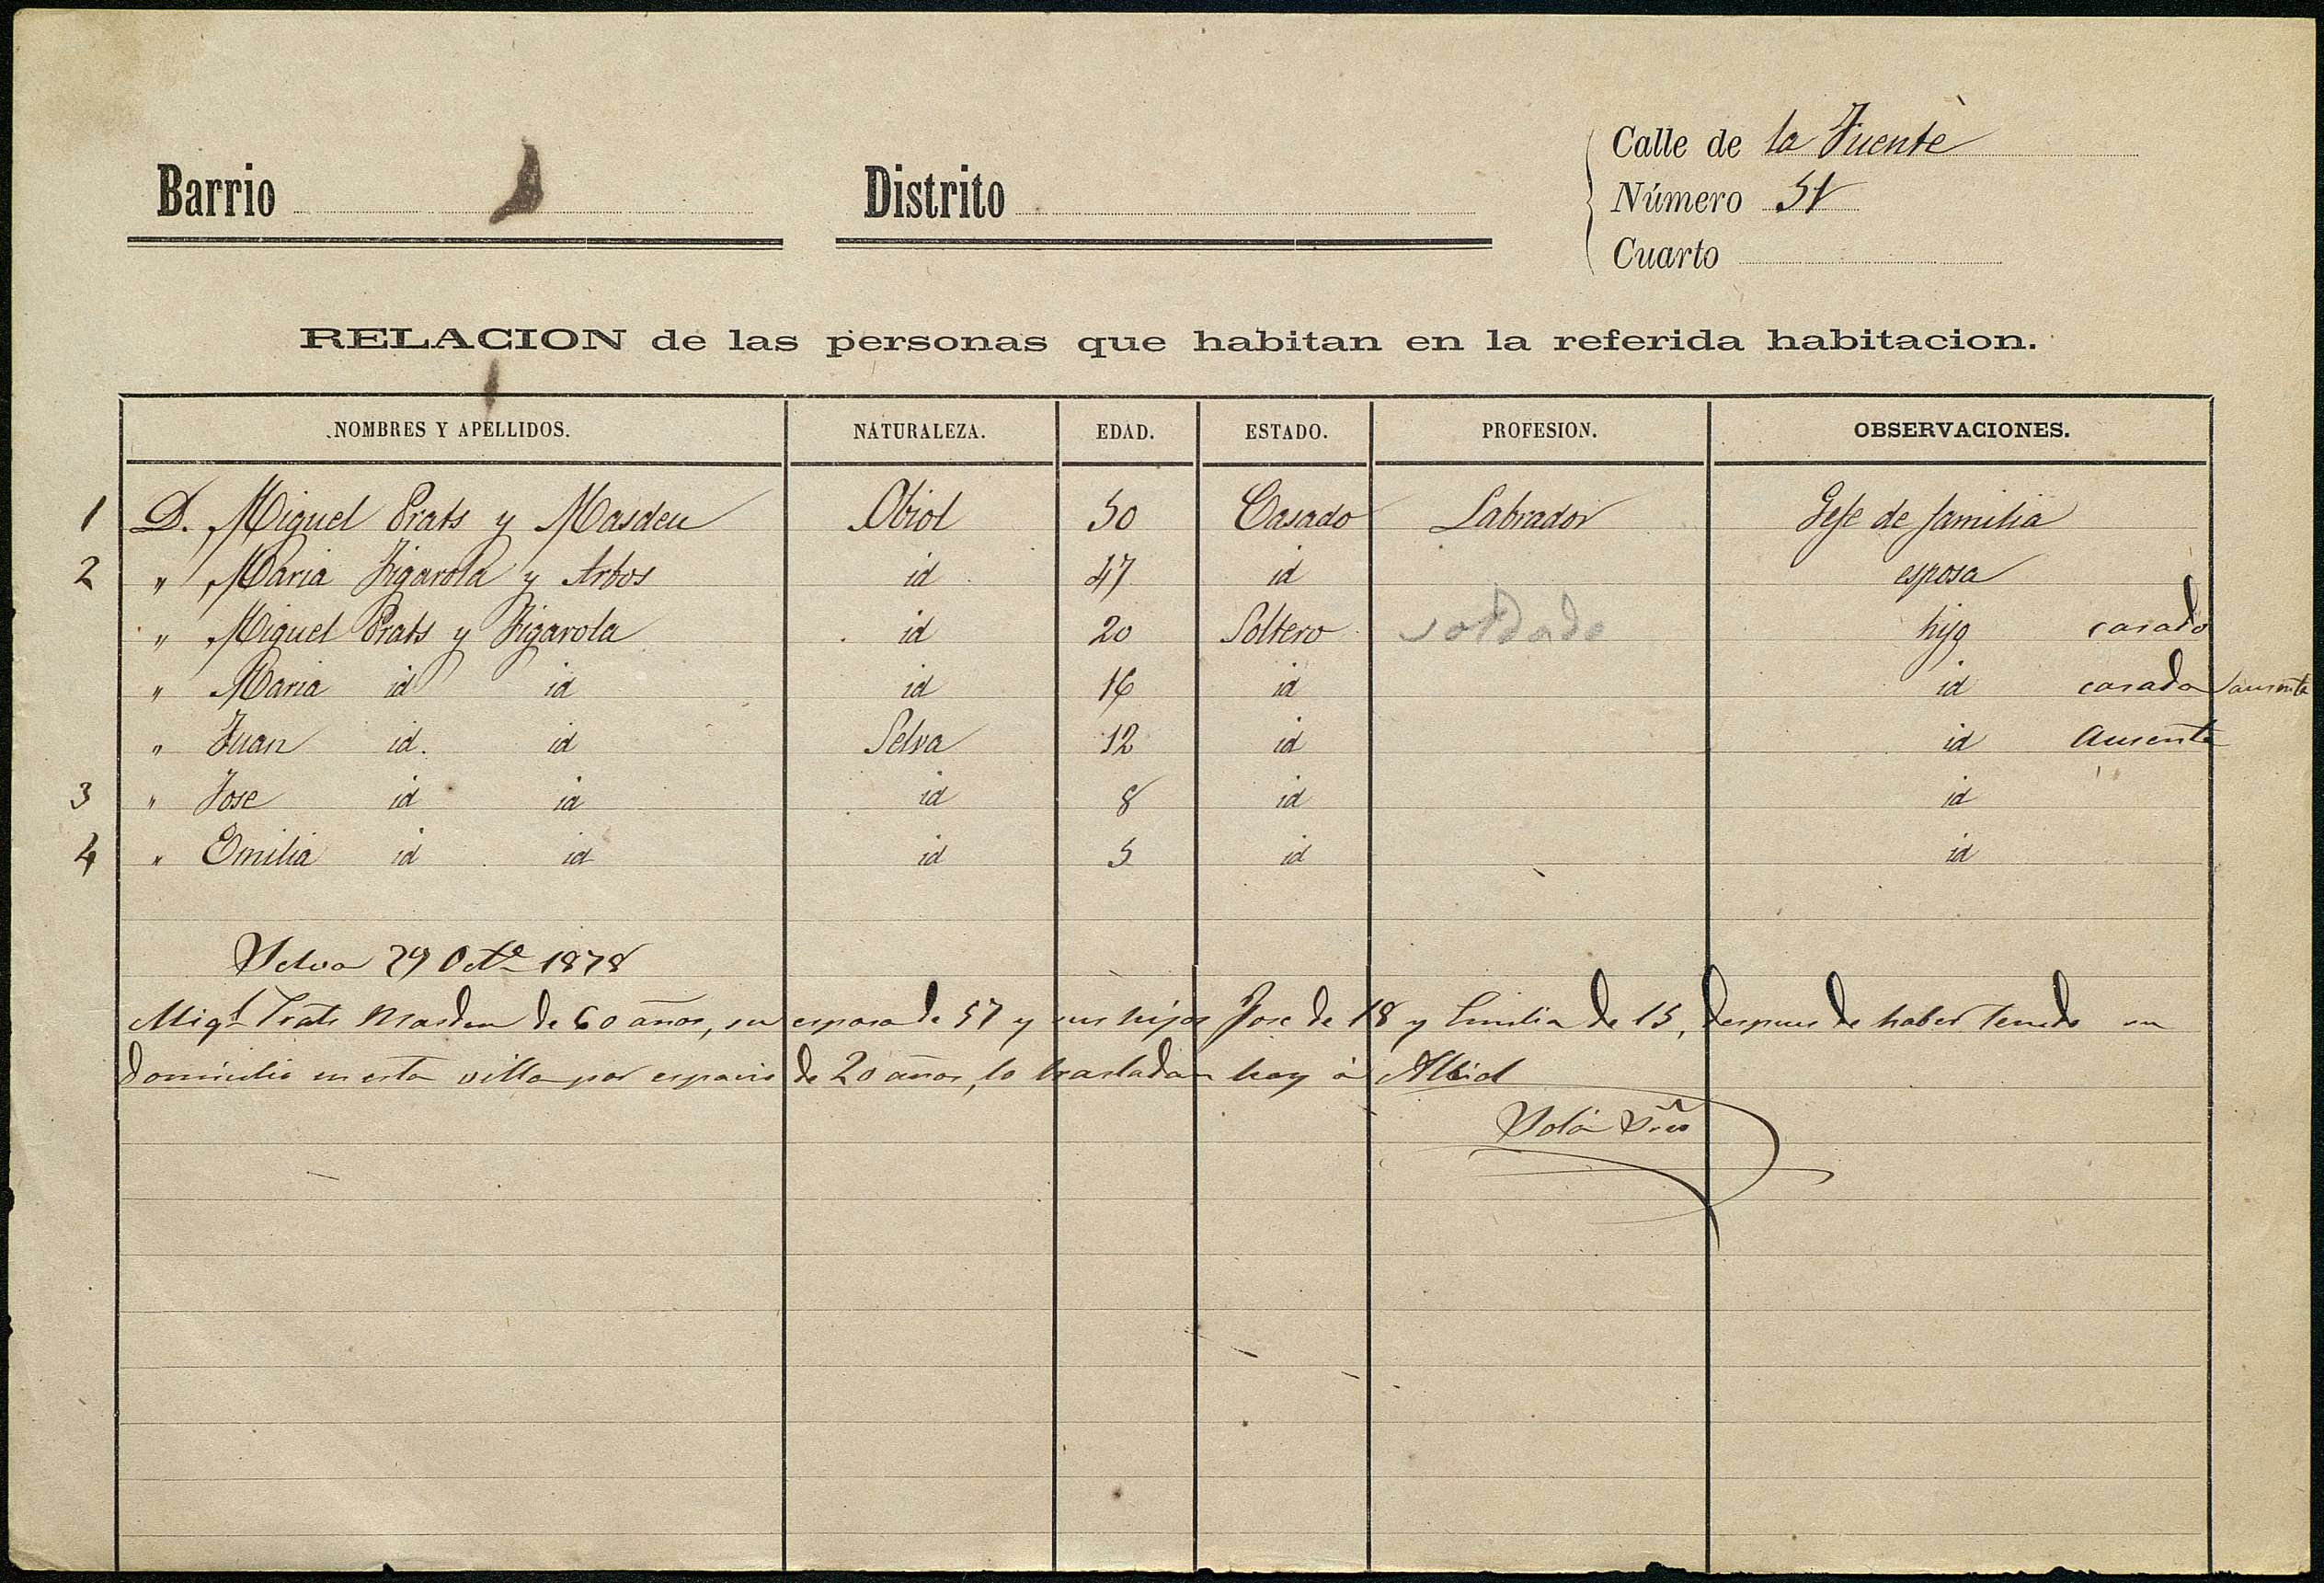 Calle de la Fuente
Barrio Distrito Número 51
Cuarto
RELACION de las personas que habitan en la referida habitacion.
NOMBRES Y APELLIDOS. NATURALEZA. EDAD. ESTADO. PROFESION. OBSERVACIONES.
1 D. Miguel Prats y Masdeu Obiol 50 Casado Labrador Gefe de familia
2 " Maria Figarola y Arbos id 47 id esposa
" Miguel Prats y Figarola id 20 Soltero soldado hijo casado
" Maria id id id 16 id id casada ausente
" Juan id. id Selva 12 id id Ausente
3 " Jose id id id 8 id id
4 " Emilia id id id 5 id id
Selva 29 Oct.e 1878
Migl Prats Masdeu de 60 años, su esposa de 57 y sus hijos Jose de 18 y Emilia de 15, despues de haber tenido su
domicilio en esta villa por espacio de 20 años, lo trasladan hoy á Albiol
Solá